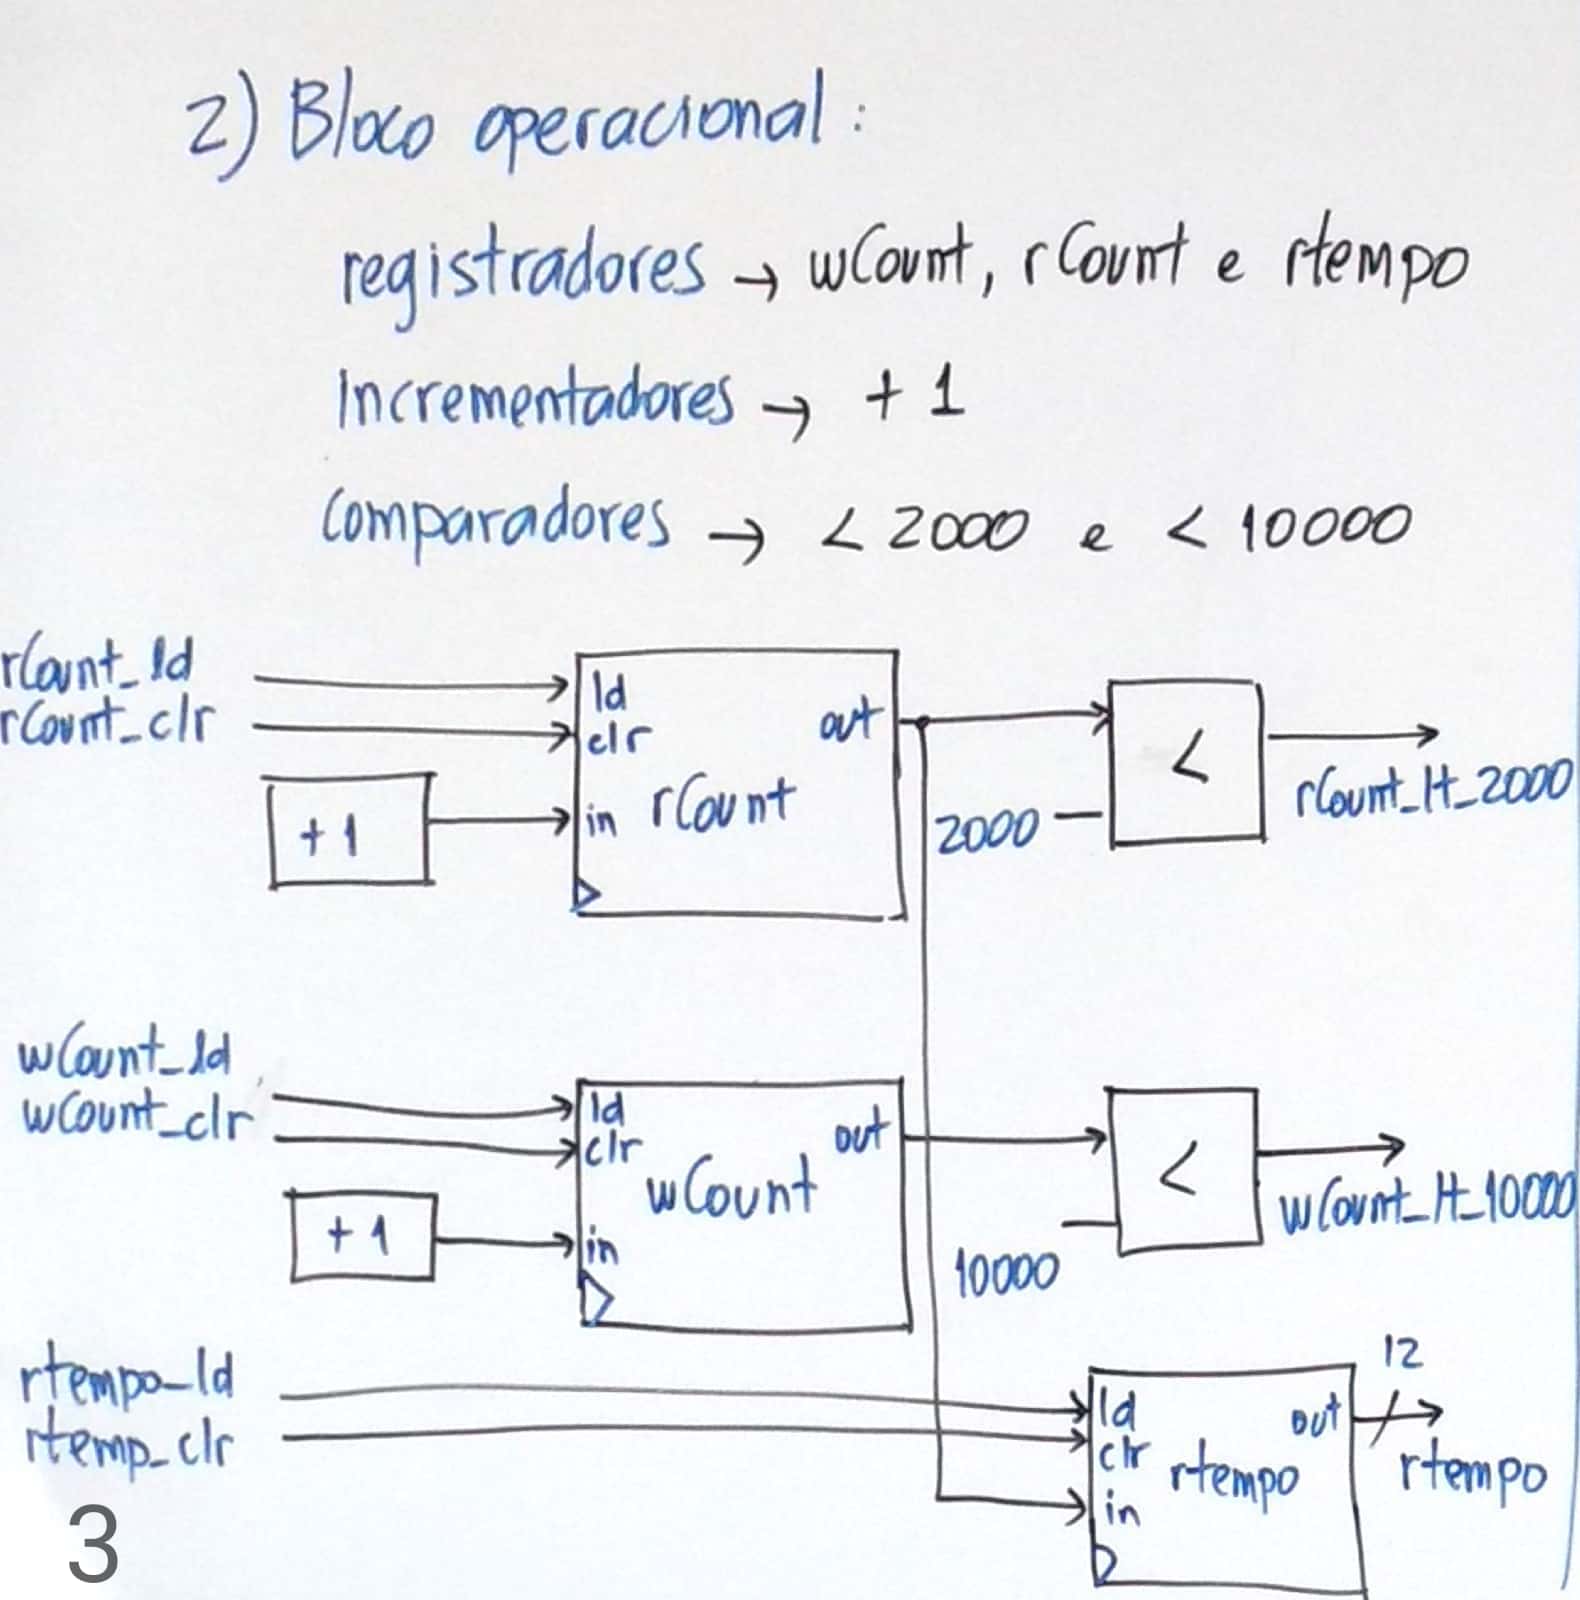 2) Bloco operacional:
registradores → wCount, rCount e rtempo
Incrementadores → +1
Comparadores → < 2000 e < 10000
rCount_ld
rCount_clr
ld
clr
out
in
rCount
+1
2000
<
rCount_lt_2000
wCount_ld
wCount_clr
ld
clr
out
wCount
in
+1
10000
<
wCount_lt_10000
rtempo_ld
rtemp_clr
ld
clr
out
rtempo
in
12
rtempo
3